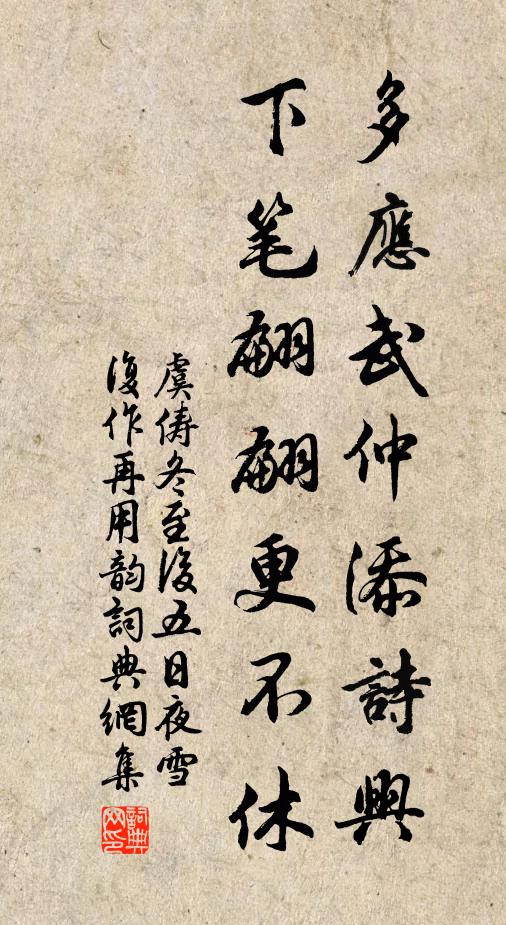 多應武仲添詩興
下笔翩翩更不休
虞俦冬至後五日夜雪
復作再用韵詞典網集
詞典
网印